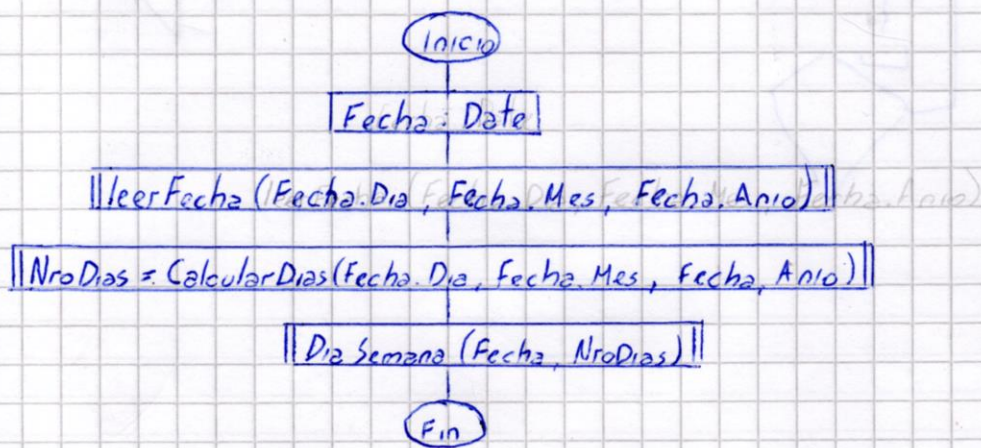 Inicio
Fecha: Date
leerFecha (Fecha.Dia, Fecha.Mes, Fecha.Anio)
NroDias = CalcularDias(Fecha.Dia, Fecha.Mes, Fecha.Anio)
DiaSemana (Fecha, NroDias)
Fin